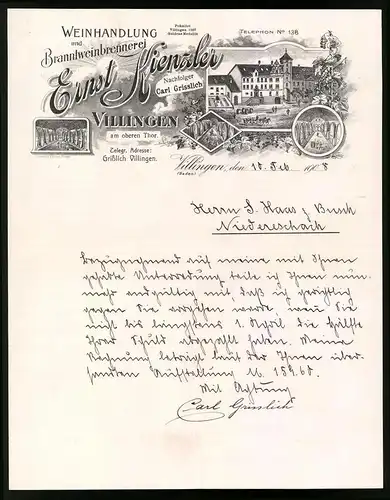 WEINHANDLUNG
und
Branntweinbrennerei
Ernst Kienzler
Nachfolger
Carl Grisslich
VILLINGEN
am oberen Thor.
Telegr. Adresse:
Grißlich Villingen.
TELEPHON No 138
Villingen, den 18. Feb. 1908
(Baden)
Herrn S. Haas z Bunk
Niedereschach
Bezugnehmend auf meine mit Ihnen
gehabte Unterredung teile ich Ihnen nun
mehr endgültig mit, daß ich gerichtlich
gegen Sie vorgehen werde, wenn Sie
nicht bis längstens 1. April die Hälfte
Ihrer Schuld abgezahlt haben. Meine
Rechnung beträgt laut der Ihnen über-
sandten Aufstellung M. 159.60.
Mit Achtung
Carl Grisslich